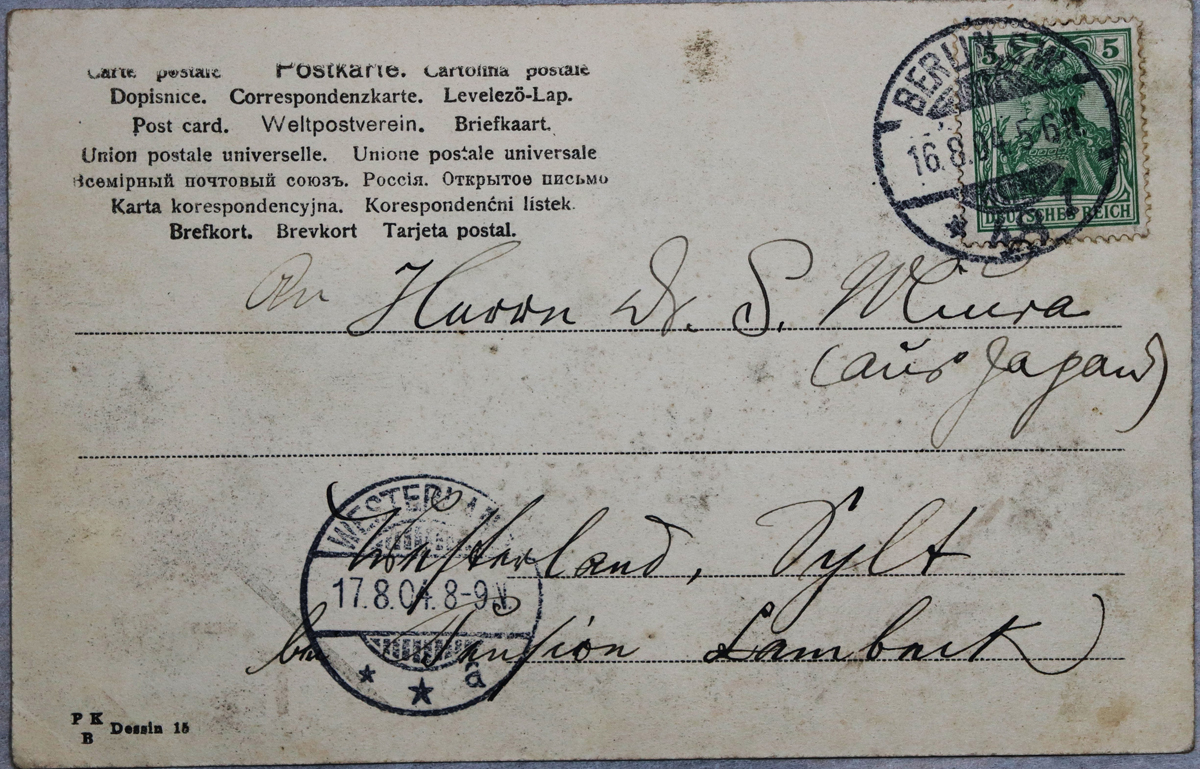 Carte postale Postkarte. Cartolina postale
Dopisnice. Correspondenzkarte. Levelező-Lap.
Post card. Weltpostverein. Briefkaart.
Union postale universelle. Unione postale universale
Всемірный почтовый союзъ. Россія. Открытое письмо
Karta korespondencyjna. Korespondenčni listek.
Brefkort. Brevkort Tarjeta postal.
BERLIN S.W.
16.8.04. 5-6 N.
5 5
DEUTSCHES REICH
An Herrn Dr. S. Miura
(aus Japan)
WESTERLAND
17.8.04. 8-9 N.
a
Westerland, Sylt
Pension Lambeck
P K
B
Dessin 15